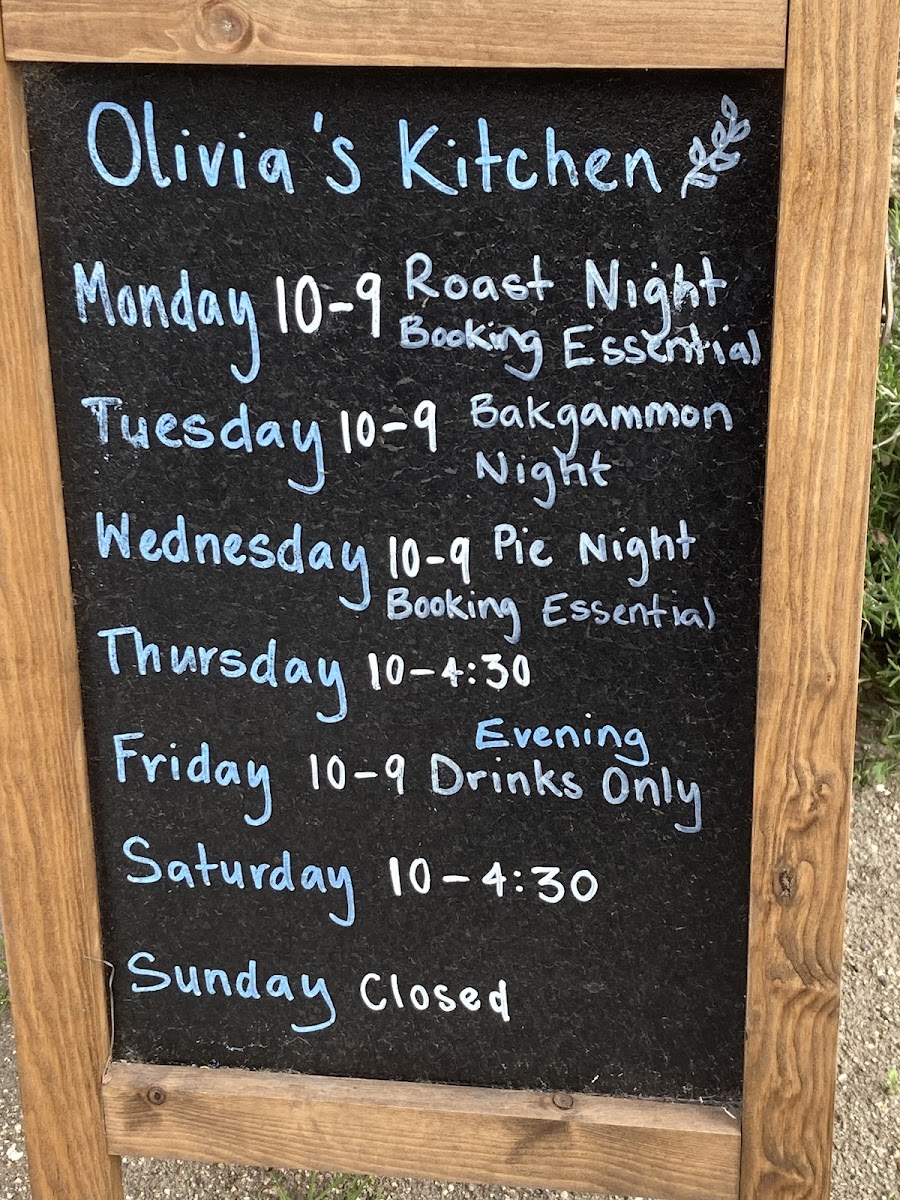 Olivia's Kitchen
Monday 10-9 Roast Night
Booking Essential
Tuesday 10-9 Bakgammon
Night
Wednesday 10-9 Pie Night
Booking Essential
Thursday 10-4:30
Evening
Friday 10-9 Drinks Only
Saturday 10-4:30
Sunday Closed